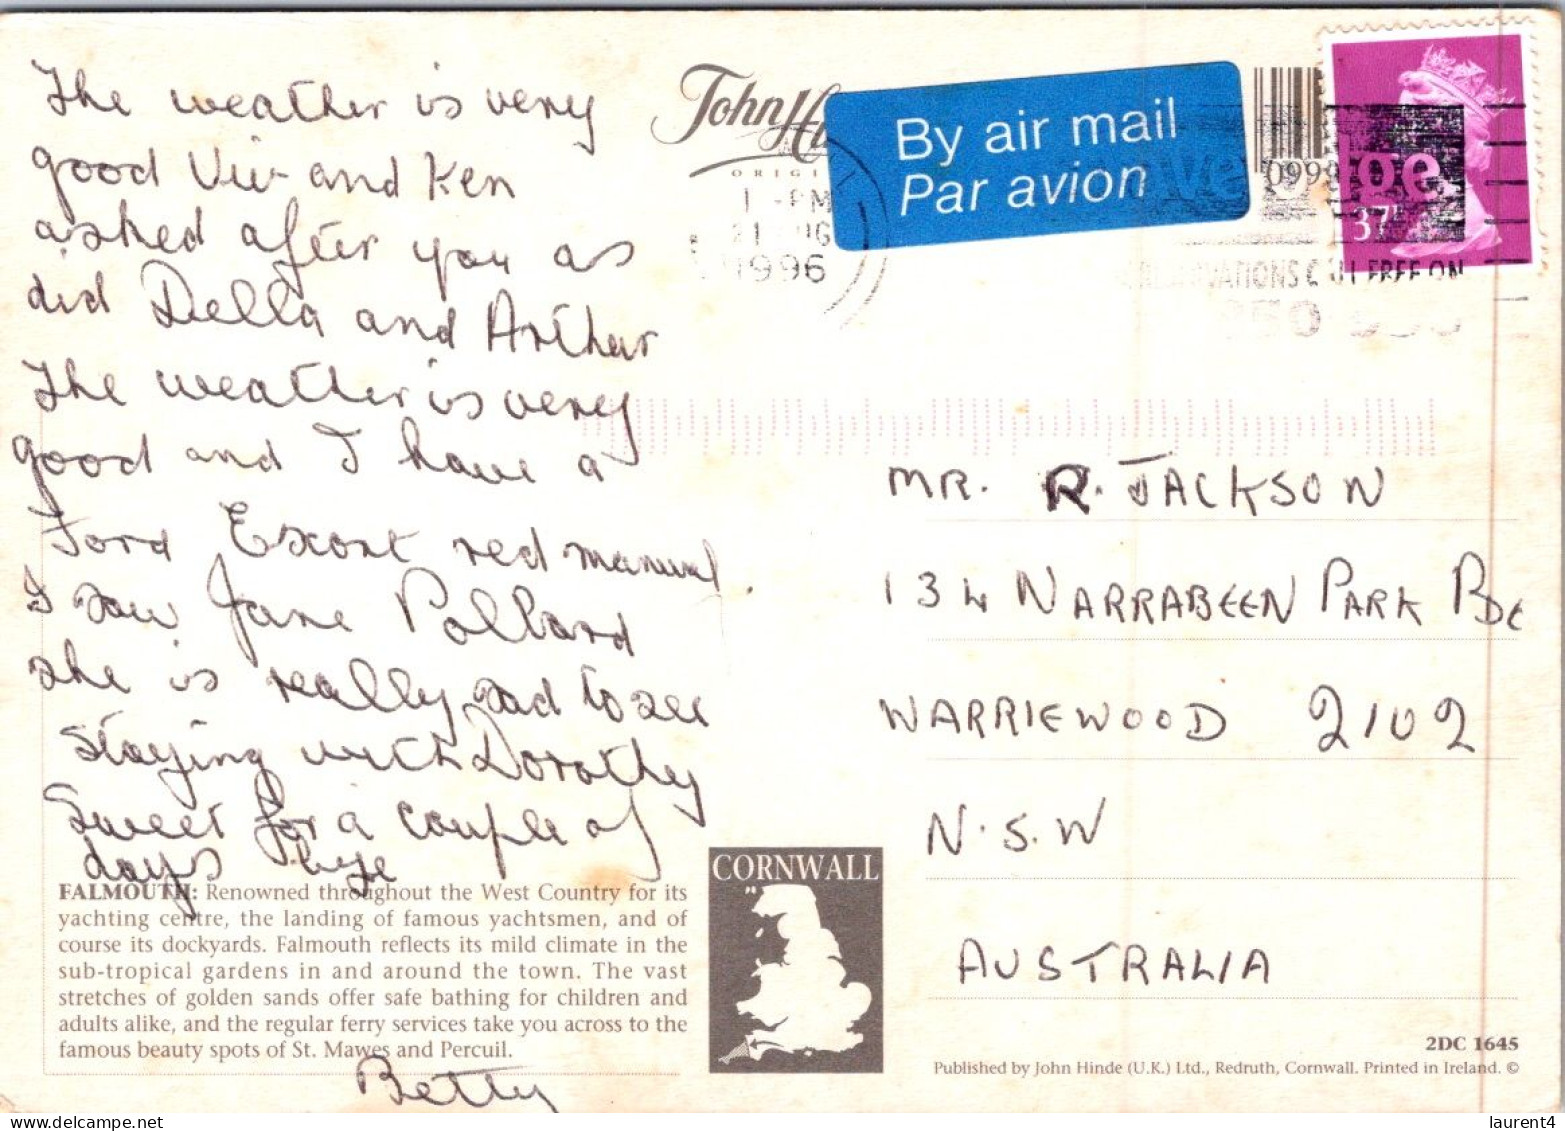 The weather is very
good Viv and Ken
asked after you as
did Della and Arthur
The weather is very
good and I have a
Ford Escort red manual.
I saw Jane Pollard
she is really sad to see
staying with Dorothy
Sweet for a couple of
days bye
Betty
FALMOUTH: Renowned throughout the West Country for its
yachting centre, the landing of famous yachtsmen, and of
course its dockyards. Falmouth reflects its mild climate in the
sub-tropical gardens in and around the town. The vast
stretches of golden sands offer safe bathing for children and
adults alike, and the regular ferry services take you across to the
famous beauty spots of St. Mawes and Percuil.
CORNWALL
John
By air mail
Par avion
PM
1996
0999
37
FREE ON
MR. R. JACKSON
134 NARRABEEN PARK PDE
WARRIEWOOD 2102
N.S.W
AUSTRALIA
2DC 1645
Published by John Hinde (U.K.) Ltd., Redruth, Cornwall. Printed in Ireland. ©
delcampe.net
laurent4